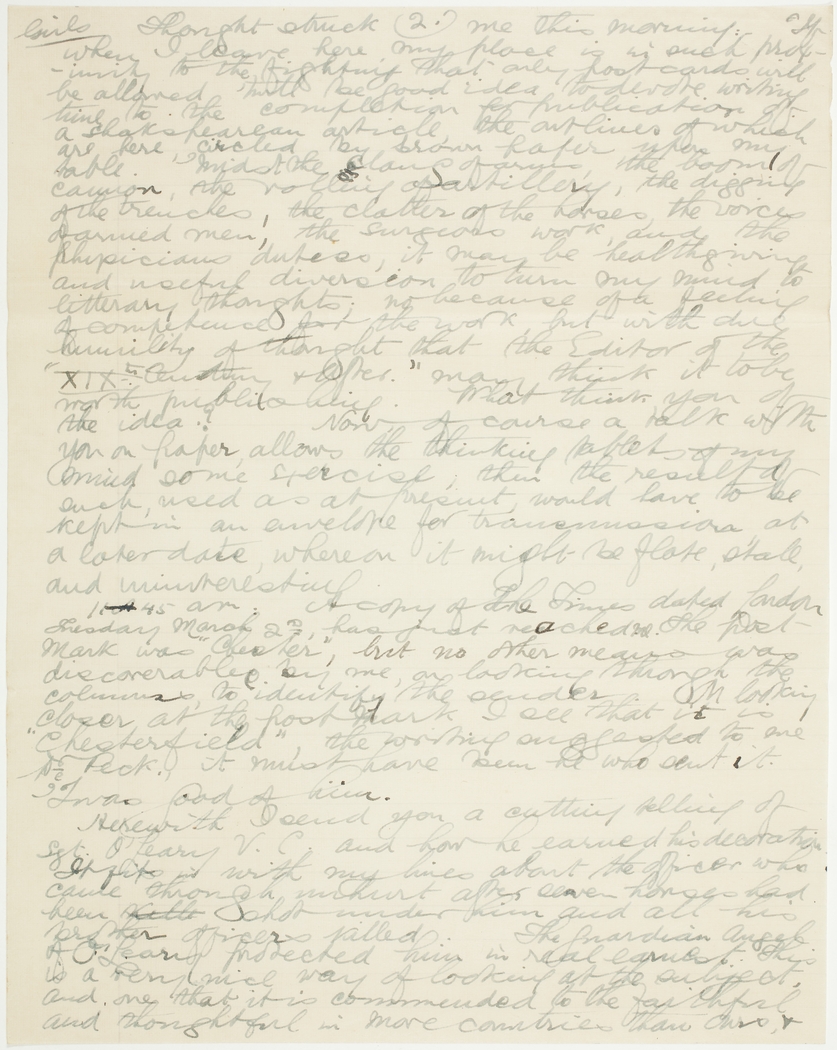 Girls Thought struck (2.) me this morning. "If
when I leave here, my place is in such prox-
-imity to the fighting that only post cards will
be allowed 'twill be good idea to devote writing
time to the completion & publication of
a Shakspearean article, the outlines of which
are here, circled by brown paper upon my
table. 'Midst the clang of arms, the boom of
cannon, the rolling of artillery, the digging
of the trenches, the clatter of the horses, the voices
of armed men, the surgeons work, and the
physicians duties, it may be healthgiving
and useful diversion to turn my mind to
litterary thoughts; no because of a feeling
of competence for the work, but with due
humility of thought that the Editor of the
"XIXth Century & After." may think it to be
worth publishing. What think you of
the idea? Now of course a talk with
you on paper, allows the thinking tablets of my
mind some exercise, then the result of
such, used as at present, would have to be
kept in an envelope for transmission at
a later date, whereon it might be flate, stale,
and uninteresting.
11 45 am. A copy of The Times dated London
Tuesday March 2nd, has just reached me. The Post-
Mark was "Chester", but no other means was
discoverable by me, on looking through the
columns, to identify the sender. On looking
closer, at the post mark I see that it is
"Chesterfield", the writing suggested to me
Dr Peck. it must have been he who sent it.
'Twas good of him.
Herewith I send you a cutting telling of
Sgt. O'Leary V.C. and how he earned his decoration
It fits in with my lines about the officer who
came through unhurt after seven horses had
been shot under him and all his
brother officers killed. The Guardian Angel
of O'Leary protected him in real earnest. This
is a very nice way of looking at the subject,
and one that it is commended to the faithful
and thoughtful in more countries than ours, &